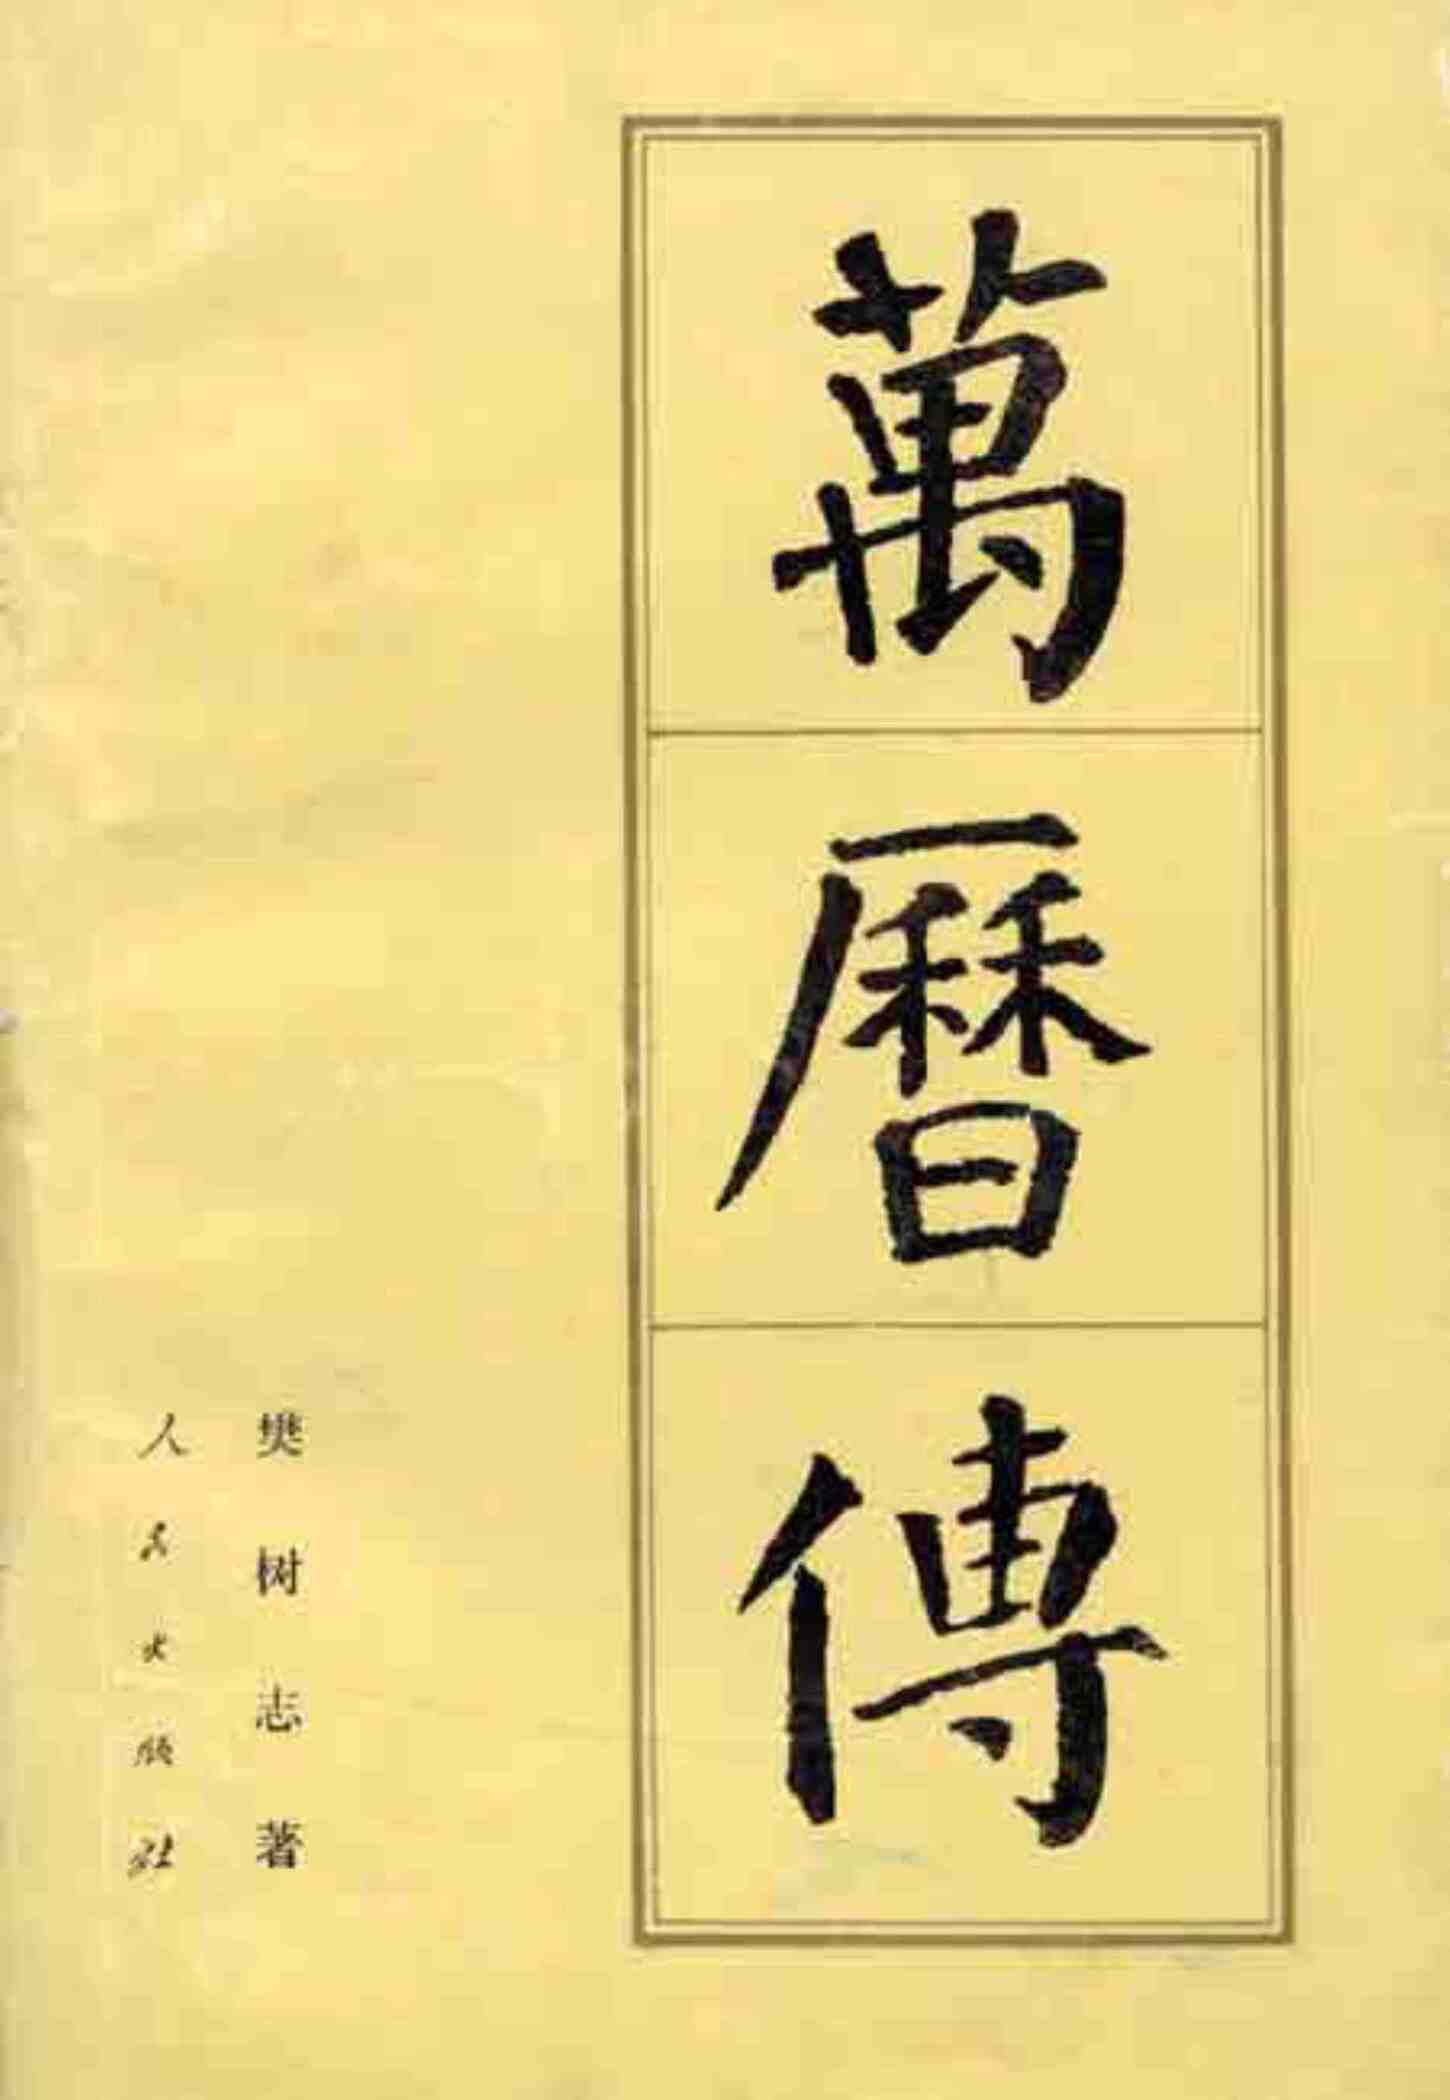 萬曆傳
樊树志著
人民出版社